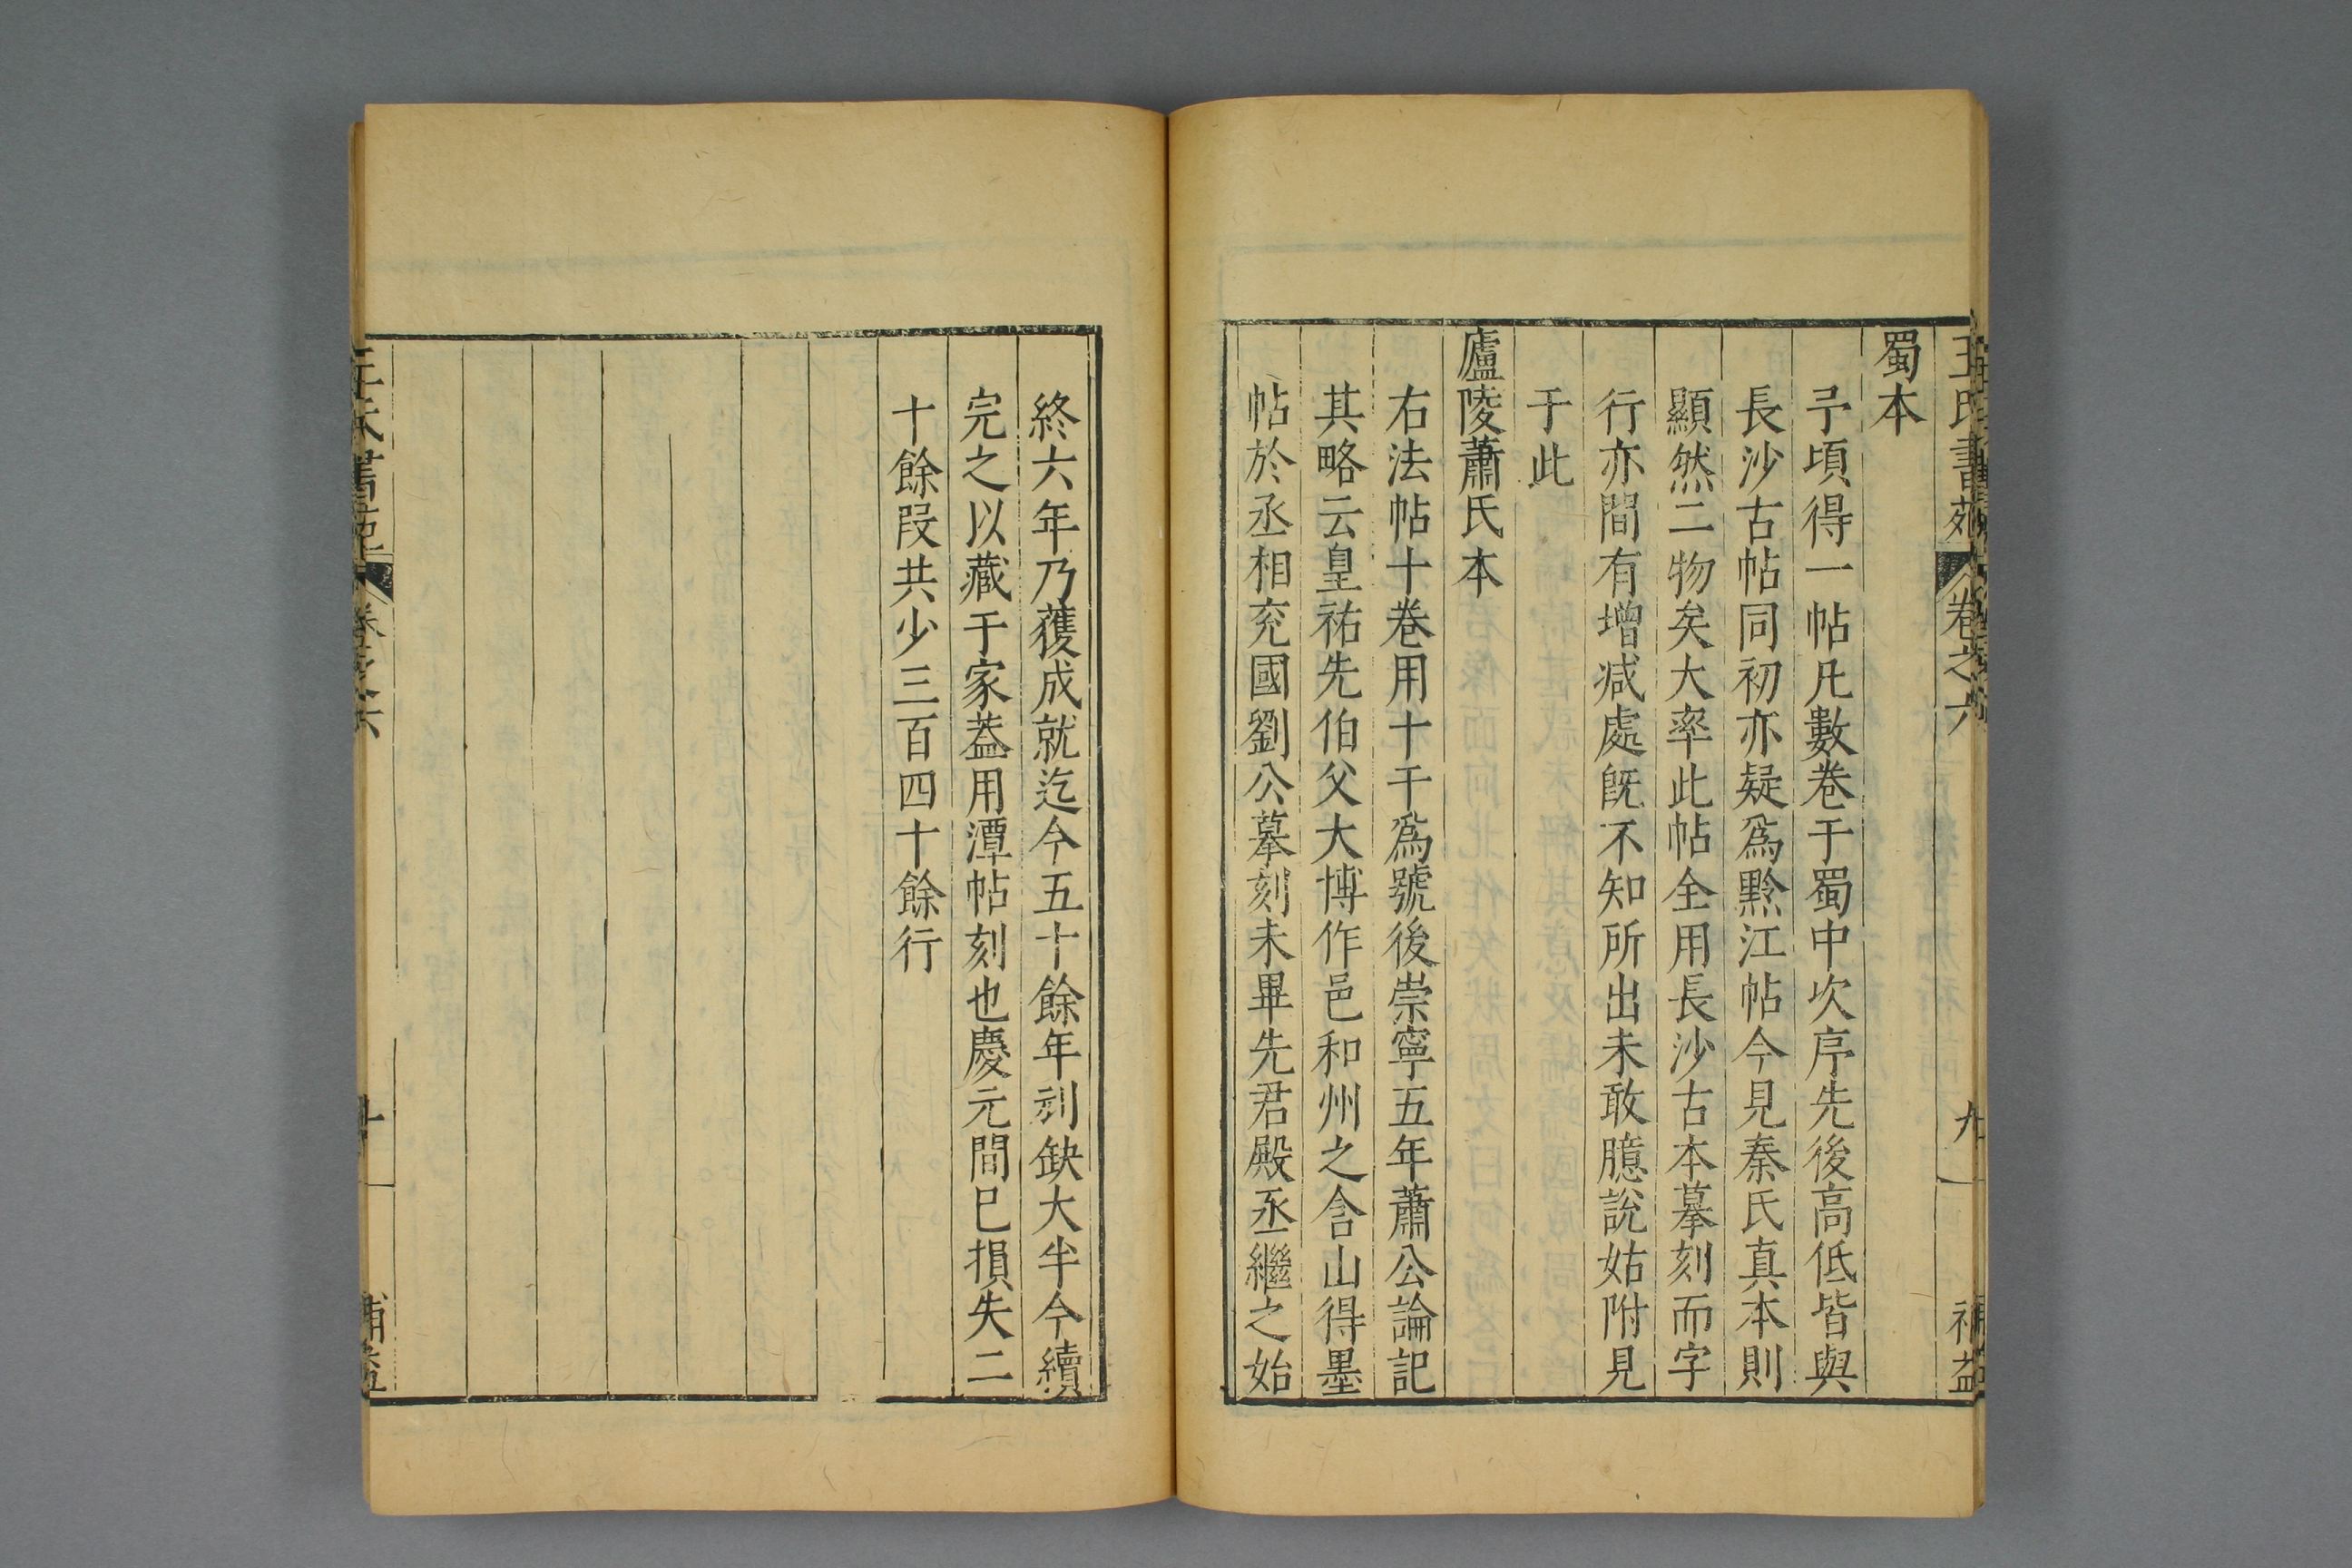 王氏書苑 卷之六 九 補益
蜀本
予頃得一帖凡數卷于蜀中次序先後高低皆與
長沙古帖同初亦疑爲黔江帖今見秦氏真本則
顯然二物矣大率此帖全用長沙古本摹刻而字
行亦間有增减處旣不知所出未敢臆說姑附見
于此
廬陵蕭氏本
右法帖十卷用十干爲號後崇寧五年蕭公論記
其略云皇祐先伯父大博作邑和州之含山得墨
帖於丞相兖國劉公摹刻未畢先君殿丞繼之始
終六年乃獲成就迄今五十餘年刓缺大半今續
完之以藏于家葢用潭帖刻也慶元間已損失二
十餘段共少三百四十餘行